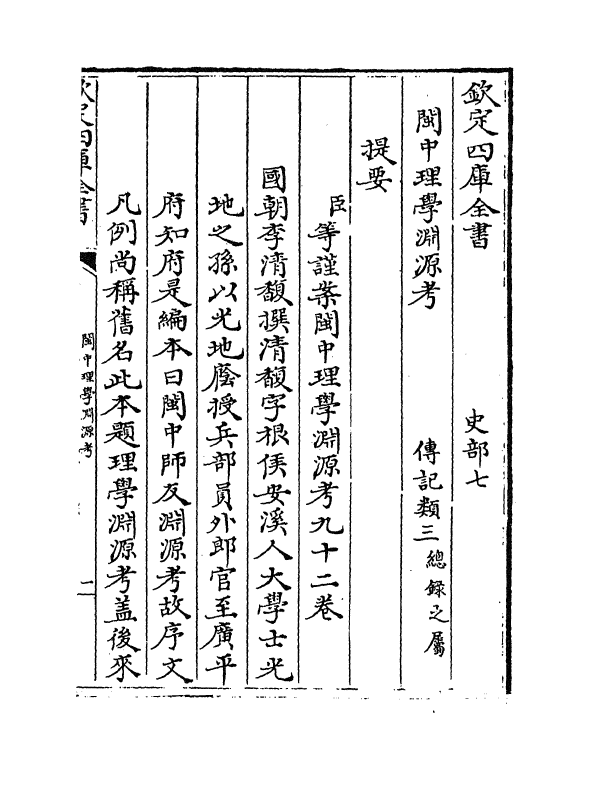 欽定四庫全書　史部七
閩中理學淵源考　傳記類三總錄之屬
提要
臣等謹案閩中理學淵源考九十二卷
國朝李清馥撰清馥字根侯安溪人大學士光
地之孫以光地廕授兵部員外郎官至廣平
府知府是編本曰閩中師友淵源考故序文
凡例尚稱舊名此本題理學淵源考盖後來
欽定四庫全書
閩中理學淵源考
一